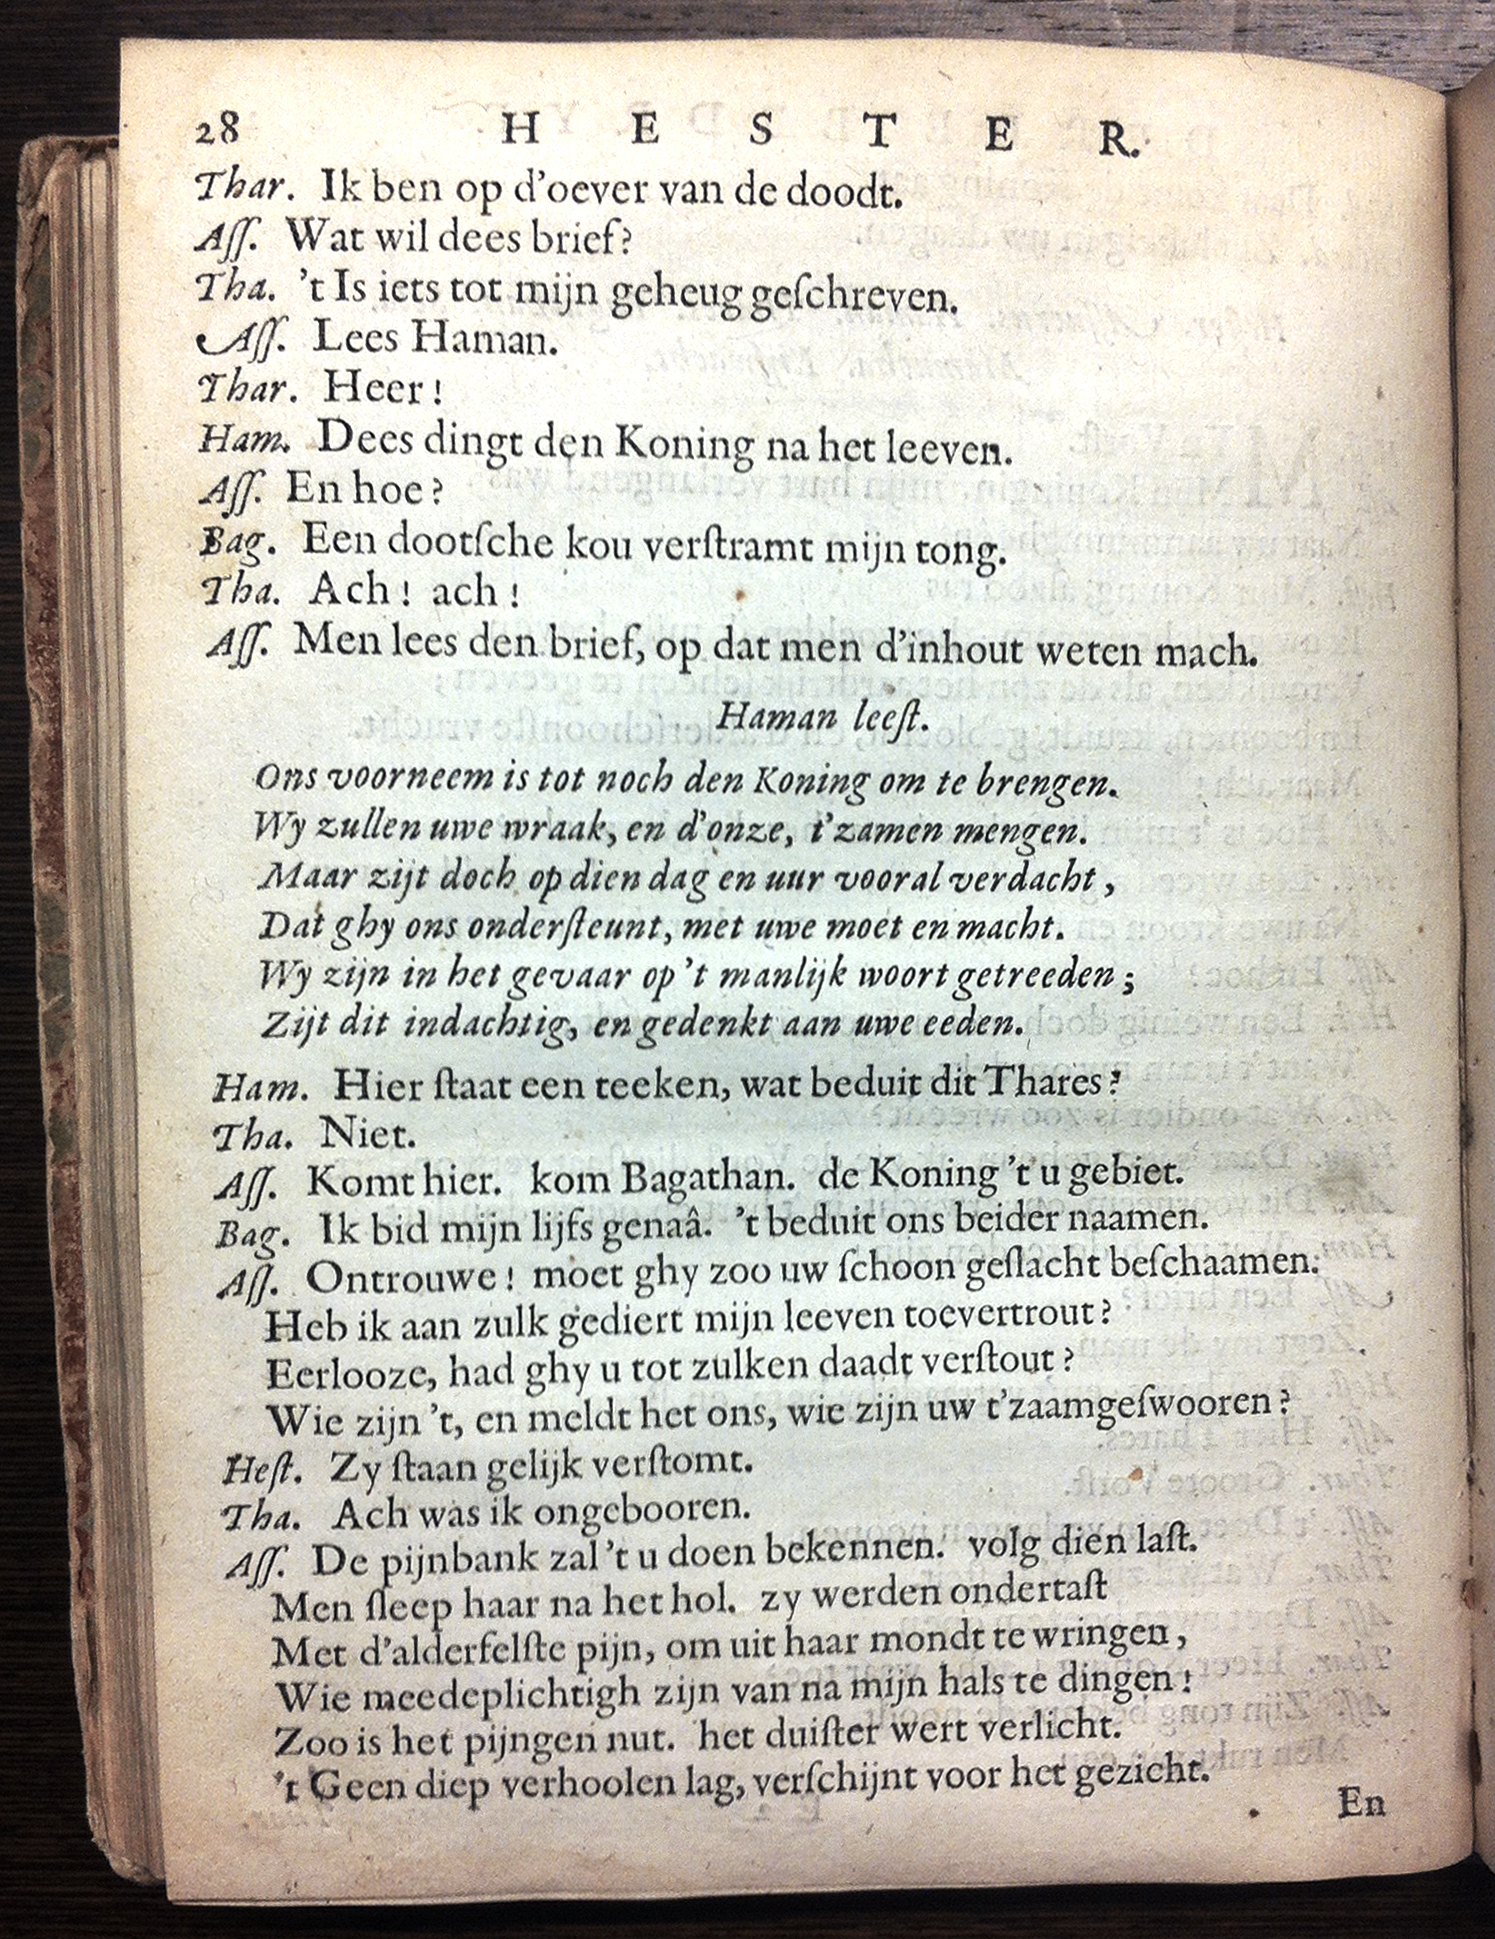 28 H E S T E R.
Thar. Ik ben op d'oever van de doodt.
Aſſ. Wat wil dees brief?
Tha. 't Is iets tot mijn geheug geſchreven.
Aſſ. Lees Haman.
Thar. Heer!
Ham. Dees dingt den Koning na het leeven.
Aſſ. En hoe?
Bag. Een dootſche kou verſtramt mijn tong.
Tha. Ach! ach!
Aſſ. Men lees den brief, op dat men d'inhout weten mach.
Haman leeſt.
Ons voorneem is tot noch den Koning om te brengen.
Wy zullen uwe wraak, en d'onze, t'zamen mengen.
Maar zijt doch op dien dag en uur vooral verdacht,
Dat ghy ons onderſteunt, met uwe moet en macht.
Wy zijn in het gevaar op 't manlijk woort getreeden;
Zijt dit indachtig, en gedenkt aan uwe eeden.
Ham. Hier ſtaat een teeken, wat beduit dit Thares?
Tha. Niet.
Aſſ. Komt hier. kom Bagathan. de Koning 't u gebiet.
Bag. Ik bid mijn lijfs genaâ. 't beduit ons beider naamen.
Aſſ. Ontrouwe! moet ghy zoo uw ſchoon geſlacht beſchaamen.
Heb ik aan zulk gediert mijn leeven toevertrout?
Eerlooze, had ghy u tot zulken daadt verſtout?
Wie zijn 't, en meldt het ons, wie zijn uw t'zaamgeſwooren?
Heſt. Zy ſtaan gelijk verſtomt.
Tha. Ach was ik ongebooren.
Aſſ. De pijnbank zal 't u doen bekennen. volg dien laſt.
Men ſleep haar na het hol. zy werden ondertaſt
Met d'alderfelſte pijn, om uit haar mondt te wringen,
Wie meedeplichtigh zijn van na mijn hals te dingen!
Zoo is het pijngen nut. het duiſter wert verlicht.
't Geen diep verhoolen lag, verſchijnt voor het gezicht.
En